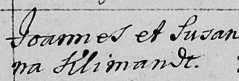 Joannes et Susan
na Klimandt.